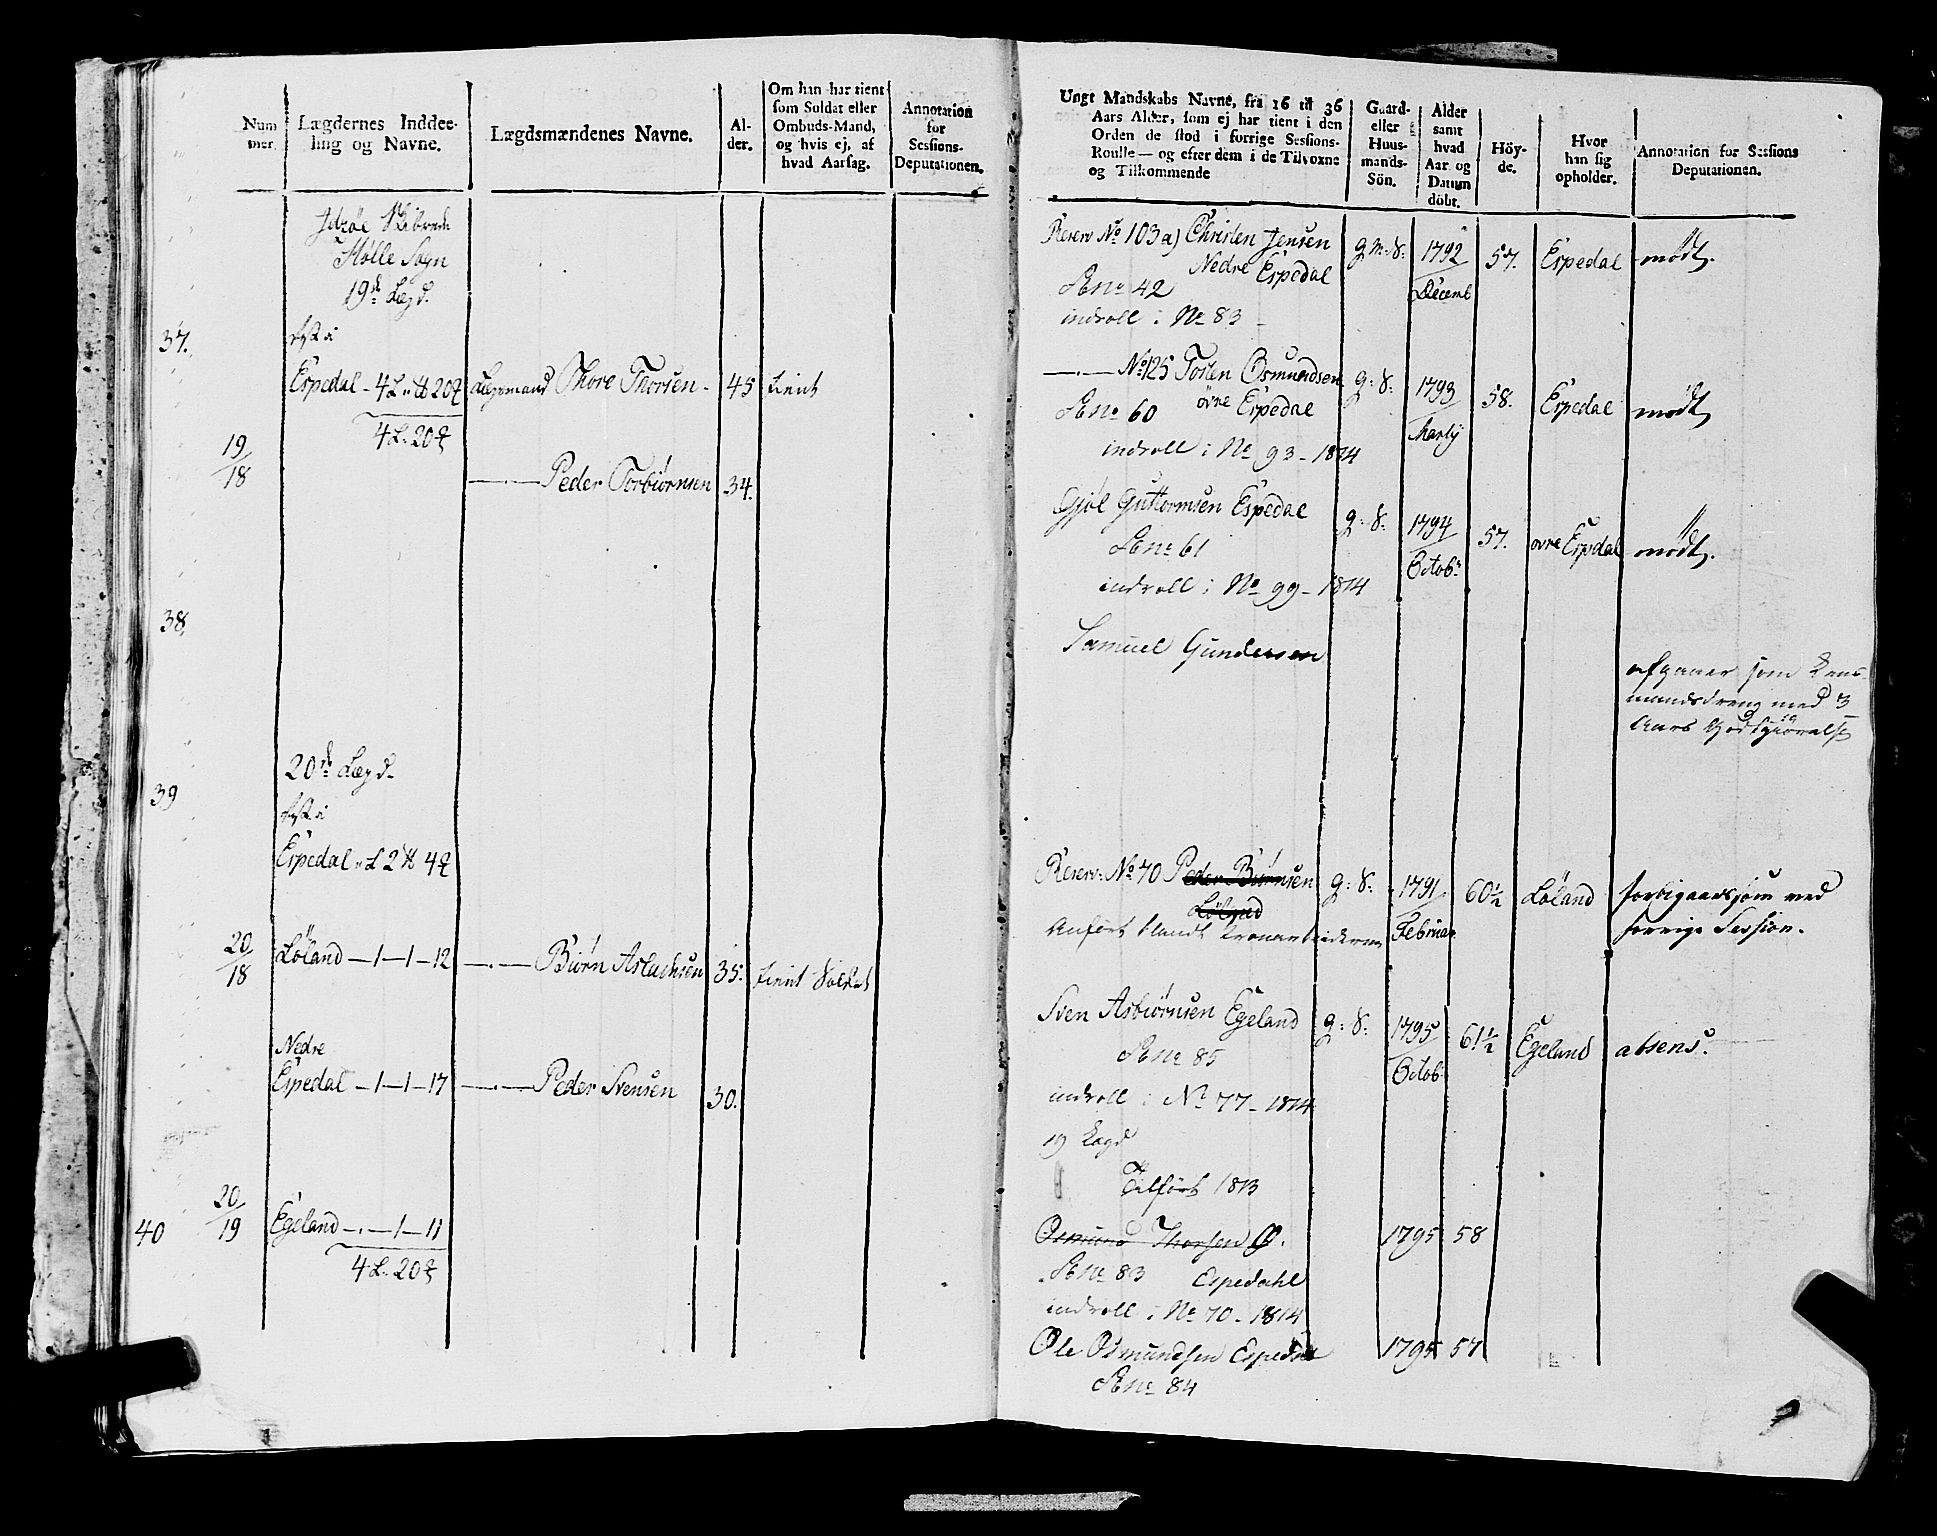 Num
mer.
Lægdernes Inddee-
ling og Navne.
Lægdsmændenes Navne.
Al-
der.
Om han har tient
som Soldat eller
Ombuds-Mand,
og hvis ej, af
hvad Aarsag.
Annotation
for
Sessions-
Deputationen.
Skibrede
Sogn
19de Lægd.
37.
Espedal - 4 L " ℔ 20
Thore Thorsen - 45 tient
4 L. 20
19/18
Peder Torbiørnsen 34.
38.
20de Lægd.
39
Espedal " L 2 ℔ 4
20/18 Løland - 1 - 1 - 12 Biørn Aslachsen 35. tient Soldat
Nedre
Espedal - 1 - 1 - 17 Peder Svensen 30.
40 20/19 Egeland - . - 1 - 11
4 L. 20
Ungt Mandskabs Navne, fra 16 til 36
Aars Alder, som ej har tient i den
Orden de stod i forrige Sessions-
Roulle — og efter dem i de Tilvoxne
og Tilkommende
Gaard-
eller
Huus-
mands-
Sön.
Alder
samt
hvad
Aar og
Datum
döbt.
Höy-
de.
Hvor
han sig
opholder.
Annotation for Sessions
Deputationen.
Reserv No 103 a) Christen Jensen g. m. S. 1792 57. Espedal mødt.
Nedre Espedal Decemb
No 42
indroll i No 83
No 125 Tosten Osmundsen g. S. 1793 58. Espedal mødt
øvre Espedal
No 60 Martÿ
indroll i No 93 - 1814
Gjøl Guttormsen Espedal g. S. 1794 57. øvre Espdal mødt.
No 61 Octobr
indroll i No 99 - 1814
Samuel Gundersen
afgaaer som Lens
mandsdreng med 3
Aars Godtgiørelse
Reserv: No 70 Peder Biørnsen g. S. 1791 60½ Løland forbigaaes som ved
Løland Februar forrige Session.
Anført blandt
Sven Asbiørnsen Egeland g. S. 1795 61½ Egeland absens.
No 85 Octob
indroll i No 77 - 1814
19 Lægd
Tilført 1813
Osmund Thorsen Ø. 1795 58
No 83 Espedahl
indroll i No 70 - 1814
Ole Osmundsen Espedal 1795 57
No 84